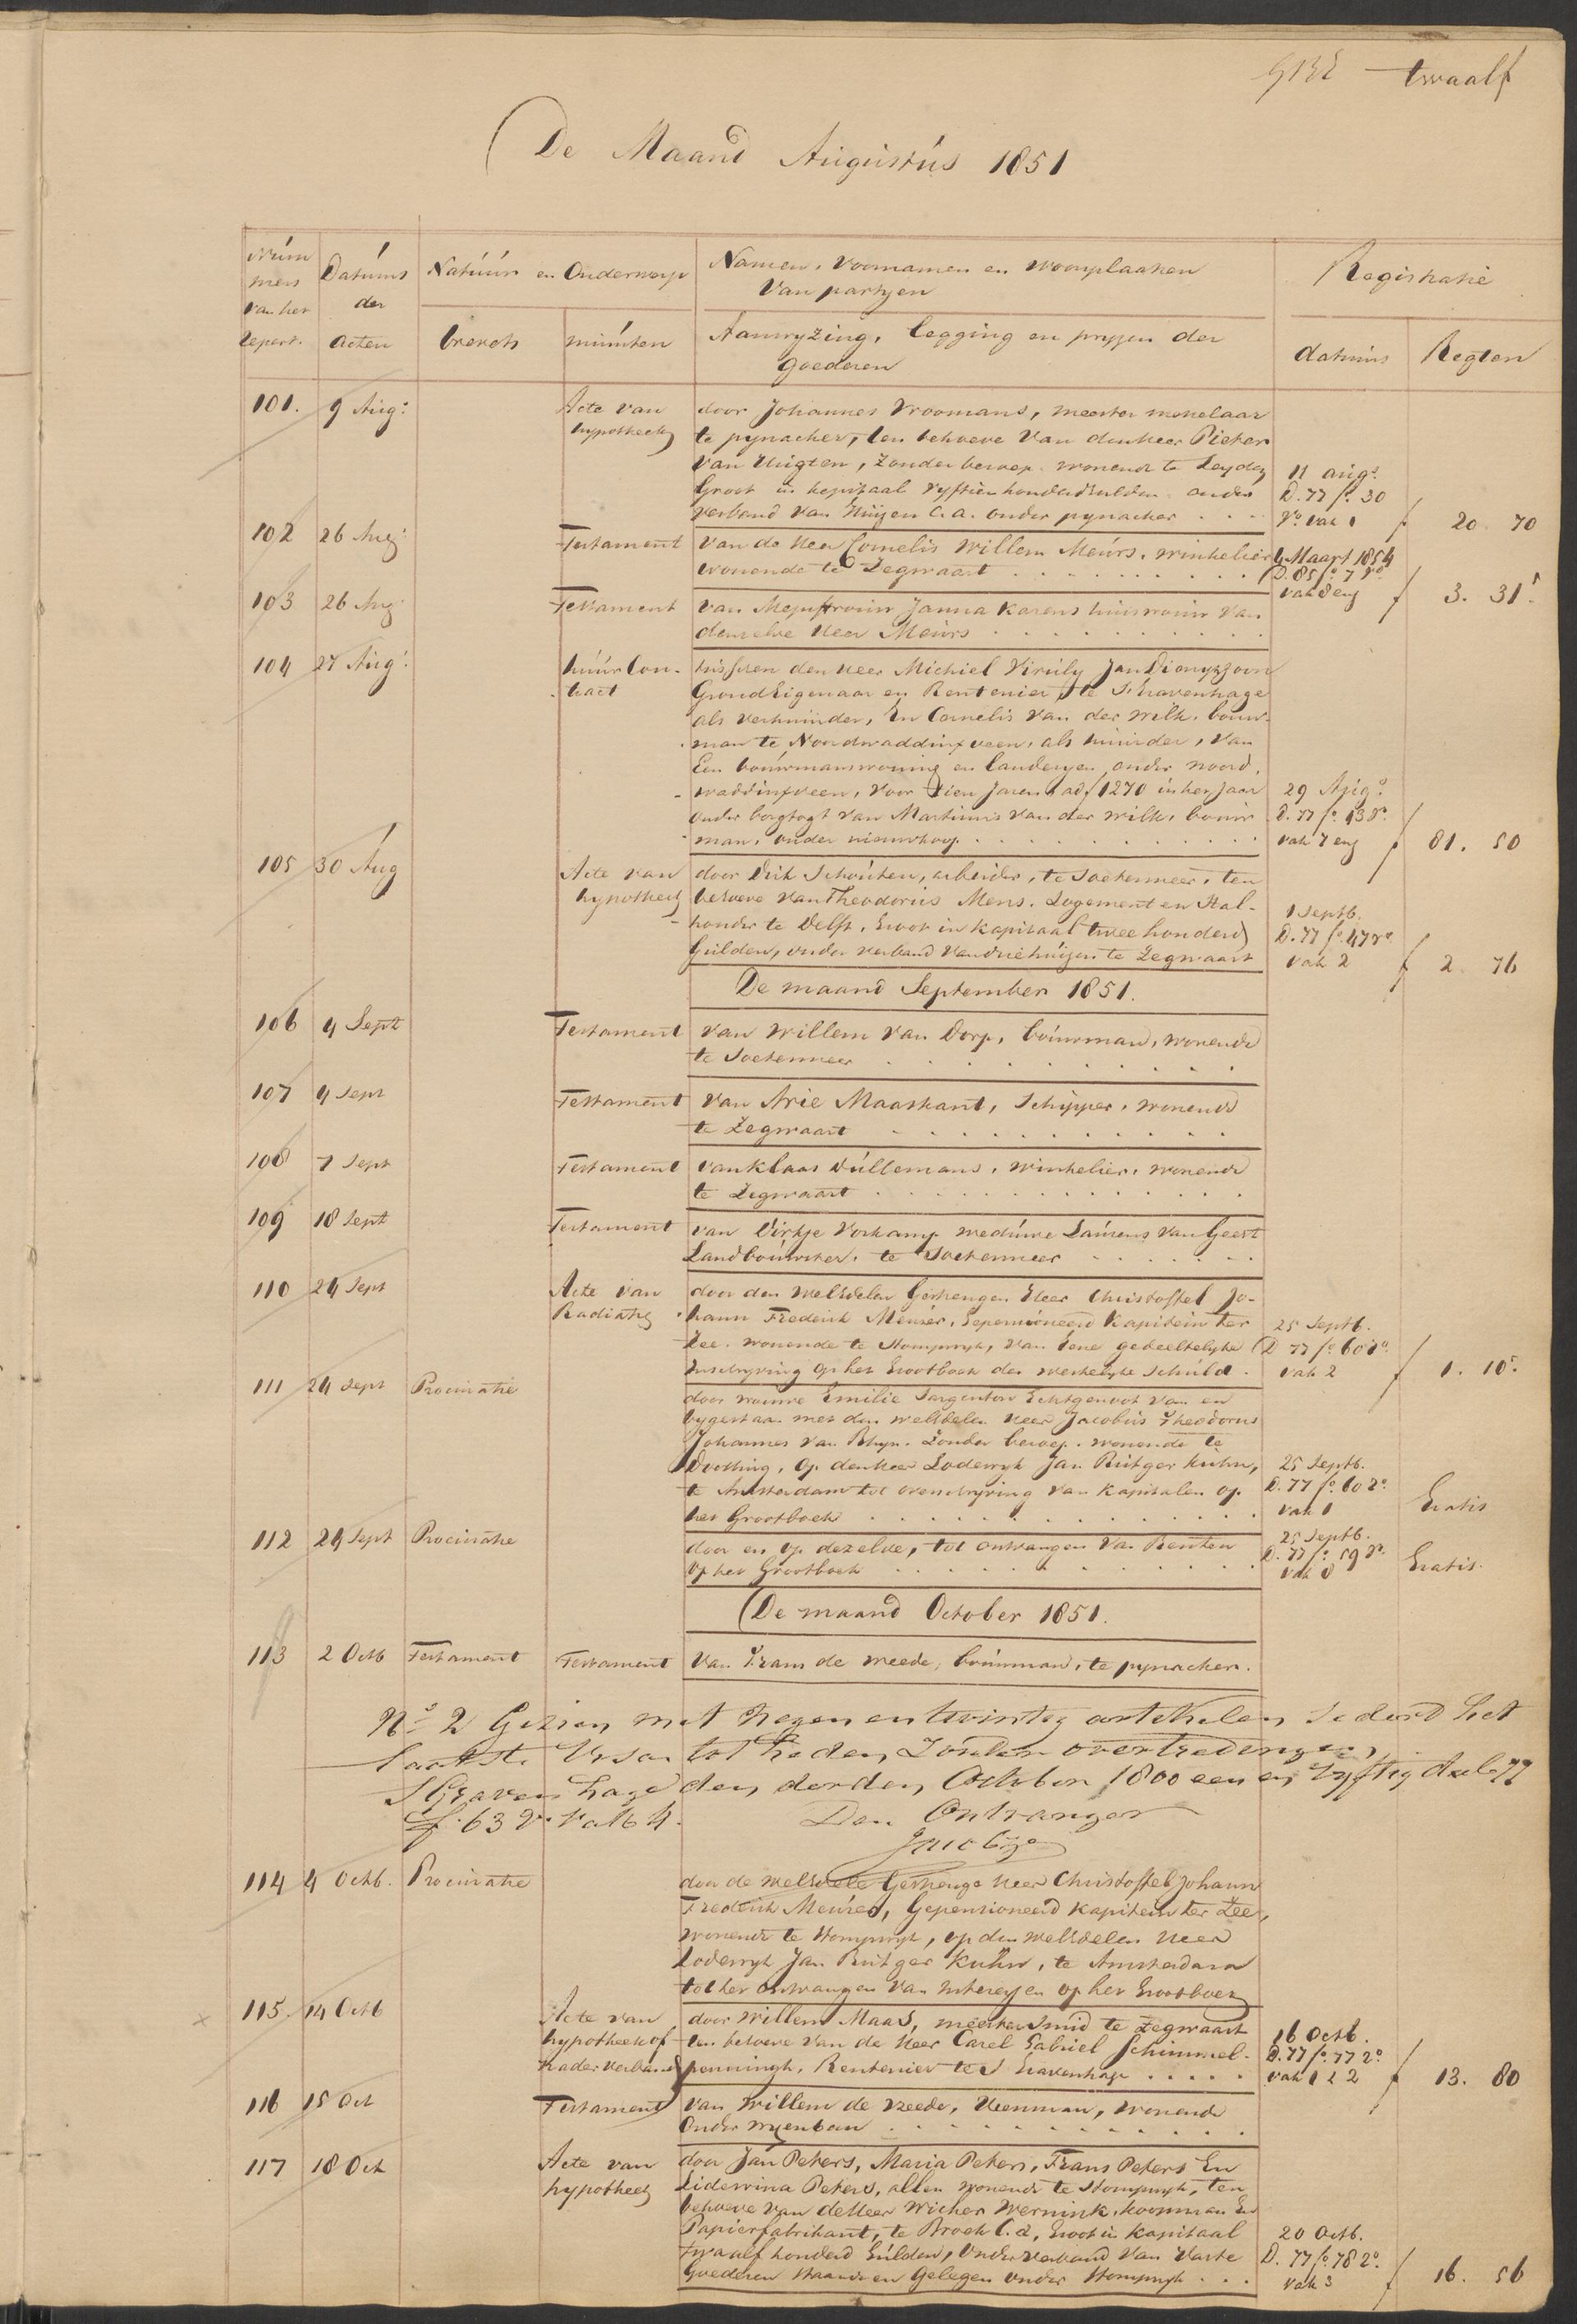 twaalf
De Maand Augustús 1851
Núm
mers
van het
repert.
Datúms
der
acten
Natúúr en Onderwerp
brevets
minúten
Namen, Voornamen en Woonplaatsen
Van partyen
Aanwyzing, legging en pryzen der
goederen
Registratie
datums
Regten
101. 9 Aug:
Acte van
hypotheek
door Johannes Vroomans, meester metselaar
te pynacker, ten behoeve van den heer Pieter
van Vrigten, zonder beroep, wonende te Leyden
Groot in kapitaal vyftienhonderd Gulden onder
verband van Huizen c.a. onder pynacker . . .
11 augs
D. 77 fo. 30
Vo. vak 1
f 20. 70
102 26 Aug:
Testament
van de Heer Cornelis Willem Meúrs, winkelier
wonende te Zegwaart . . . . . . . .
4 Maart 1854
D. 85 fo. 7 Vo
vak 8 eng
f 3. 315
103 26 Aug:
Testament
van Mejufvrouw Janna Karens huisvrouw van
denzelve Heer Meúrs . . . . . . . . .
104 27 Aug:
húúrCon-
tract
tusschen den Heer Michiel Virúly JanDionyszoon
GrondEigenaar en Rentenier, te S'Gravenhage
als verhuúrder, En Cornelis van der Wilk, bouw-
man te Noordwaddinxveen, als húúrder, van
Een boúwmanswoning en landeryen onder noord-
waddinxveen, voor tien jaren ad f 1270 in het jaar
onder borgtogt van Martinus van der Wilk, bouw-
man, onder nieuwkoop. . . . . . . . .
29 Augs
D. 77 fo. 43 Vo.
vak 7 eng
f 81. 50
105 30 Aug
Acte van
hypotheek
door Dirk Schoúten, arbeider, te Soetermeer, ten
behoeve van Theodorus Mens, Logement en Stal-
houder te Delft, Groot in kapitaal twee honderd
Gulden, onder verband van drie húizen te Zegwaart
1 Septb.
D. 77 fo. 47 Vo
vak 2
f 2. 76
De maand September 1851.
106 4 Sept
Testament
van Willem van Dorp, boúwman, wonende
te Soetermeer . . . . . . . . .
107 4 Sept
Testament
van Arie Maaskant, Schipper, wonende
te Zegwaart . . . . . . . . .
108 7 Sept
Testament
van Klaas Dúllemans, winkelier, wonende
te Zegwaart . . . . . . . . .
109 18 Sept
Testament
van Dirkje Voskamp weduwe Laúrens van Geest
Landboúwster, te Soetermeer . . . . . .
110 24 Sept
Acte van
Radiatie
door den WelEdelen Gestrengen Heer Christoffel Jo-
hann Frederik Meúrer, Gepensioneerd Kapitein ter
Zee, wonende te Stompwyk, van Eene gedeeltelyke
Inschryving op het Grootboek der werkelyke Schúld .
25 Septb.
D 77 fo. 60 Vo.
vak 2
f 1. 105.
111 24 Sept Procúratie
door vrouwe Emilie Sargenton Echtgenoot van en
bygestaan met den welEdelen Heer Jacobus Theodorus
Johannes van Rhyn, zonder beroep, wonende te
Voorburg, op den Heer Lodewyk Jan Rutger Kuhn,
te Amsterdam tot overschryving van kapitalen op
het Grootboek . . . . . . . . .
25 Septb.
D. 77 fo. 60 Vo.
vak 1
Gratis
112 24 Sept Procúratie
door en op dezelve, tot ontvangen van Renten
op het Grootboek . . . . . . . . .
25 Septb.
D. 77 fo. 59 Vo.
vak 8
Gratis.
De maand October 1851.
113 2 Octb Testament Testament van Frans de Vreede, boúwman, te pynacker.
No. 2 Gezien met Negen en twintig artikelen sederd het
laatste Visa tot heden, Zonder overtredingen,
S'Gravenhage den derden October 1800 een en vyftig deel 77
f. 63 V. Vak 4.
Den Ontvanger
114 4 Octb. Procúratie
door de welEdele Gestrenge Heer Christoffel Johann
Frederik Meúrer, Gepensioneerd kapitein ter Zee,
wonende te Stompwyk, op den welEdelen Heer
Lodewyk Jan Rutger Kuhn, te Amsterdam
tot het ontvangen van Interessen op het Grootboek
115. 14 Octb
Acte van
hypotheek of
nader verband
door Willem Maas, meester Smid te Zegwaart
ten behoeve van de Heer Carel Gabriel Schimmel-
penningh, Rentenier te S'Gravenhage . . . . .
16 Octb.
D. 77 fo. 77 Vo.
vak 1 & 2
f 13. 80
116 15 Oct
Testament
van Willem de Vreede, Veenman, wonende
onder . . . . . . . . .
117 18 Oct
Acte van
hypotheek
door Jan Peters, Maria Peters, Frans Peters En
Liderwina Peters, allen wonende te Stompwyk, ten
behoeve van de Heer Wicher Wernink, koopman En
Papierfabrikant, te Broek c.a., Groot in kapitaal
twaalf honderd Gúlden, Onder verband van Vaste
Goederen staande en gelegen onder Stompwyk . . .
20 Octb.
D. 77 fo. 78 Vo.
vak 3
f 16. 56